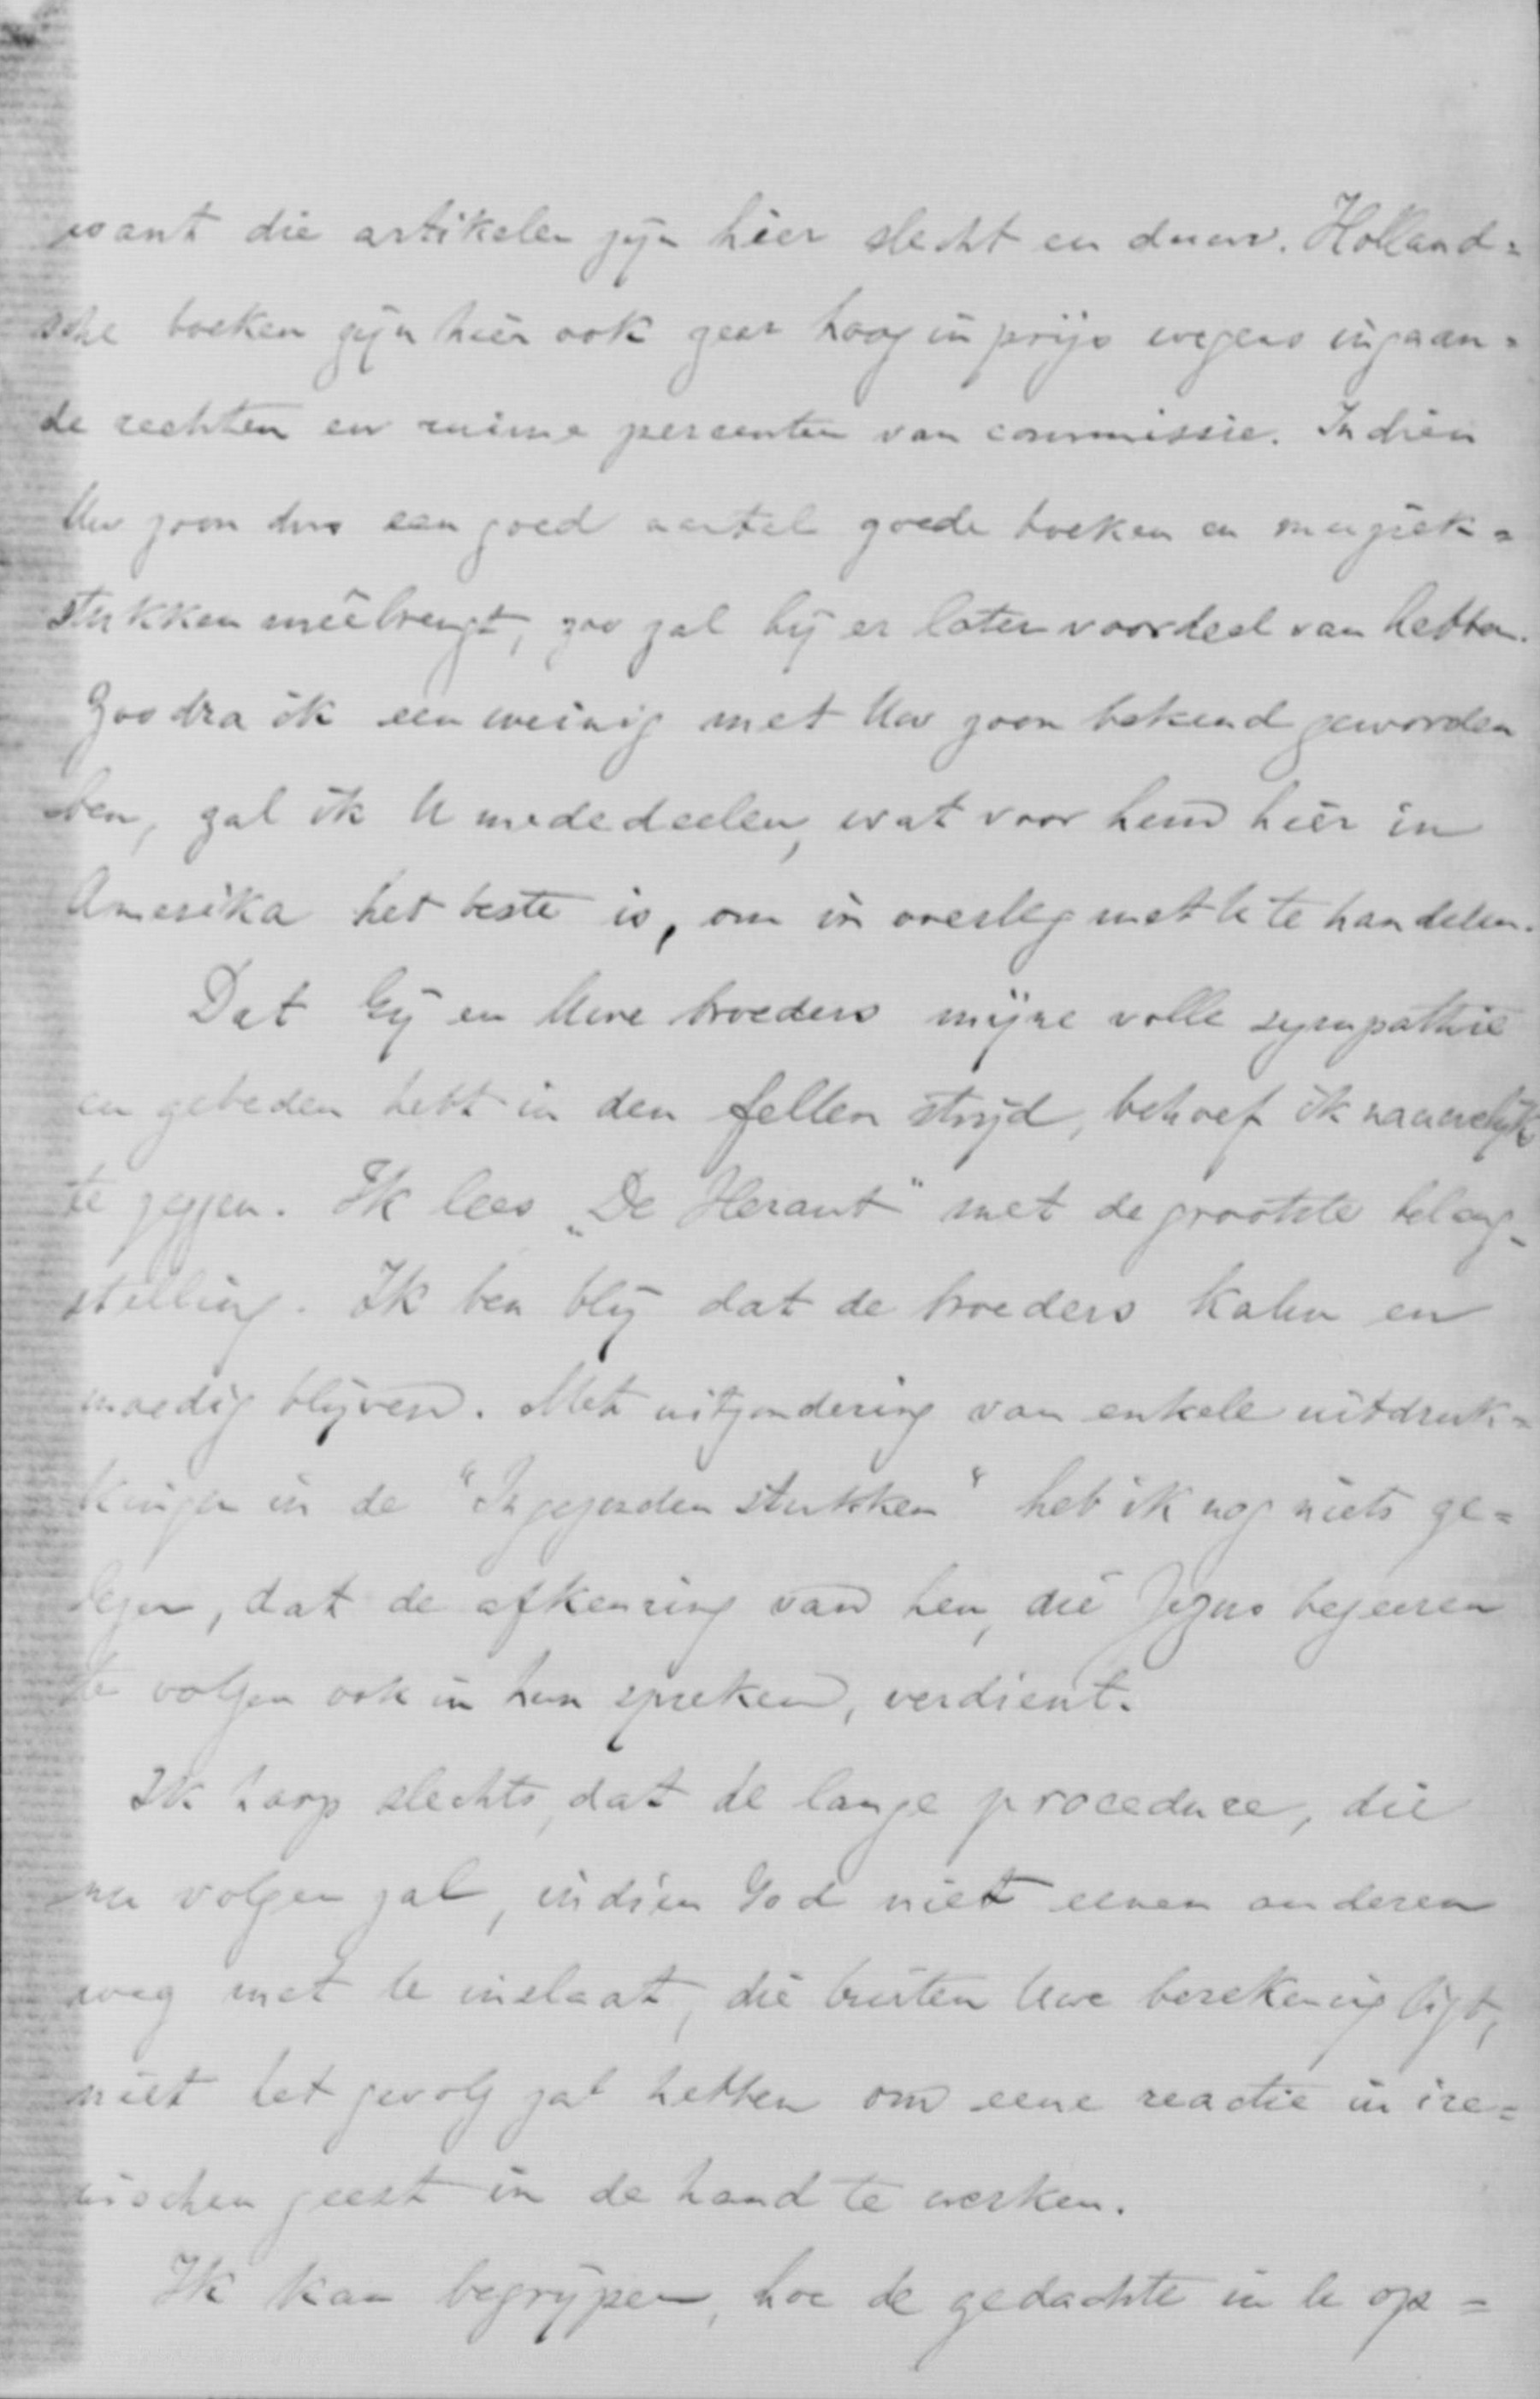 want die artikelen zijn hier slecht en duur. Holland=
sche boeken zijn hier ook zeer hoog in prijs wegens ingaan=
de rechten en ruime percenten van commissie. Indien
Uw zoon dus een goed aantal goede boeken en muziek=
stukken meêbrengt, zoo zal hij er later voordeel van hebben.
Zoodra ik een weinig met Uw zoon bekend geworden
ben, zal ik U mededeelen, wat voor hem hier in
Amerika het beste is, om in overleg met U te handelen.
Dat Gij en Uwe broeders mijne volle sympathie
en gebeden hebt in den fellen strijd, behoef ik nauwelijks
te zeggen. Ik lees „De Heraut" met de grootste belang-
stelling. Ik ben blij dat de broeders kalm en
moedig blijven. Met uitzondering van enkele uitdruk=
kingen in de "Ingezonden stukken" heb ik nog niets ge=
lezen, dat de afkeuring van hen, die Jezus begeeren
te volgen ook in hun spreken, verdient.
Ik hoop slechts, dat de lange procedure, die
nu volgen zal, indien God niet eenen anderen
weg met U inslaat, die buiten Uwe berekening ligt,
niet het gevolg zal hebben om eene reactie in ire=
nischen geest in de hand te werken.
Ik kan begrijpen, hoe de gedachte in U op=